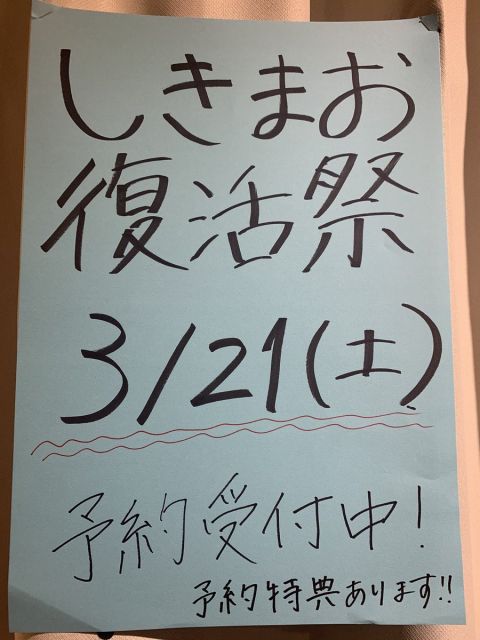 しきまお
復活祭
3/21(土)
予約受付中!
予約特典あります!!